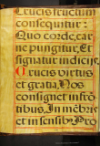 Crucis fructum
consequitur.
Quo corde, car
ne pungitur, Et
signatur indicije.
Crucis virtus
et gratia, Nos
consignet in fro
tibus, In mēbris
et in sensibus Pro